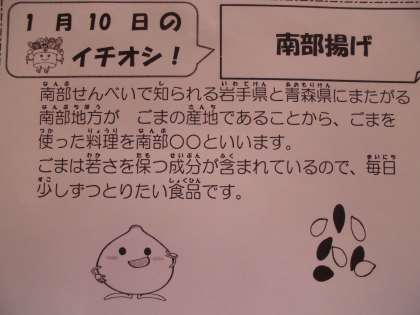 1月10日の
イチオシ！
南部揚げ
南部せんべいで知られる岩手県と青森県にまたがる
南部地方が　ごまの産地であることから、ごまを
使った料理を南部〇〇といいます。
ごまは若さを保つ成分が含まれているので、毎日
少しずつとりたい食品です。